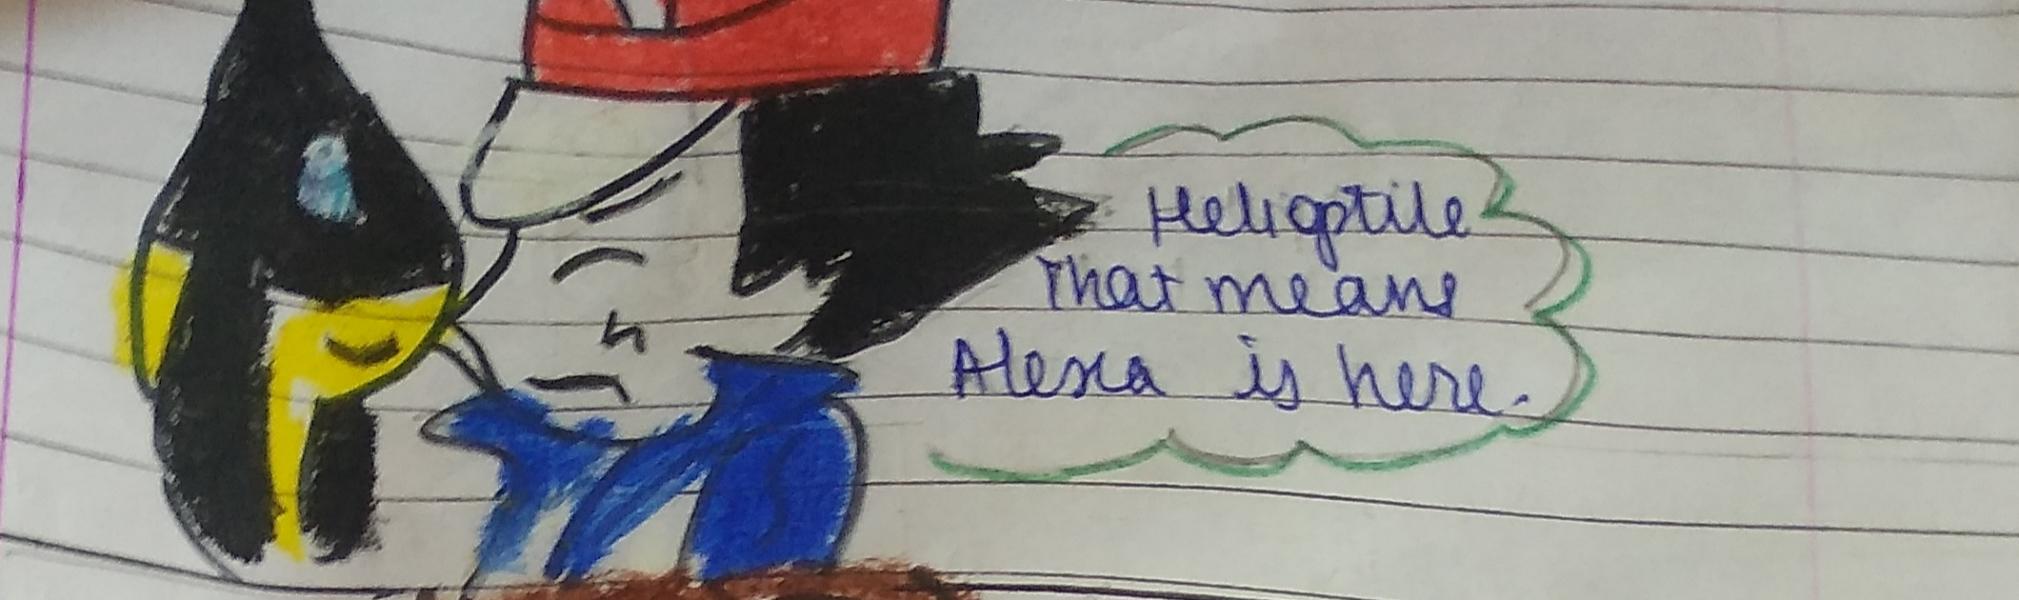 Helioptile
That means
Alexa is here.